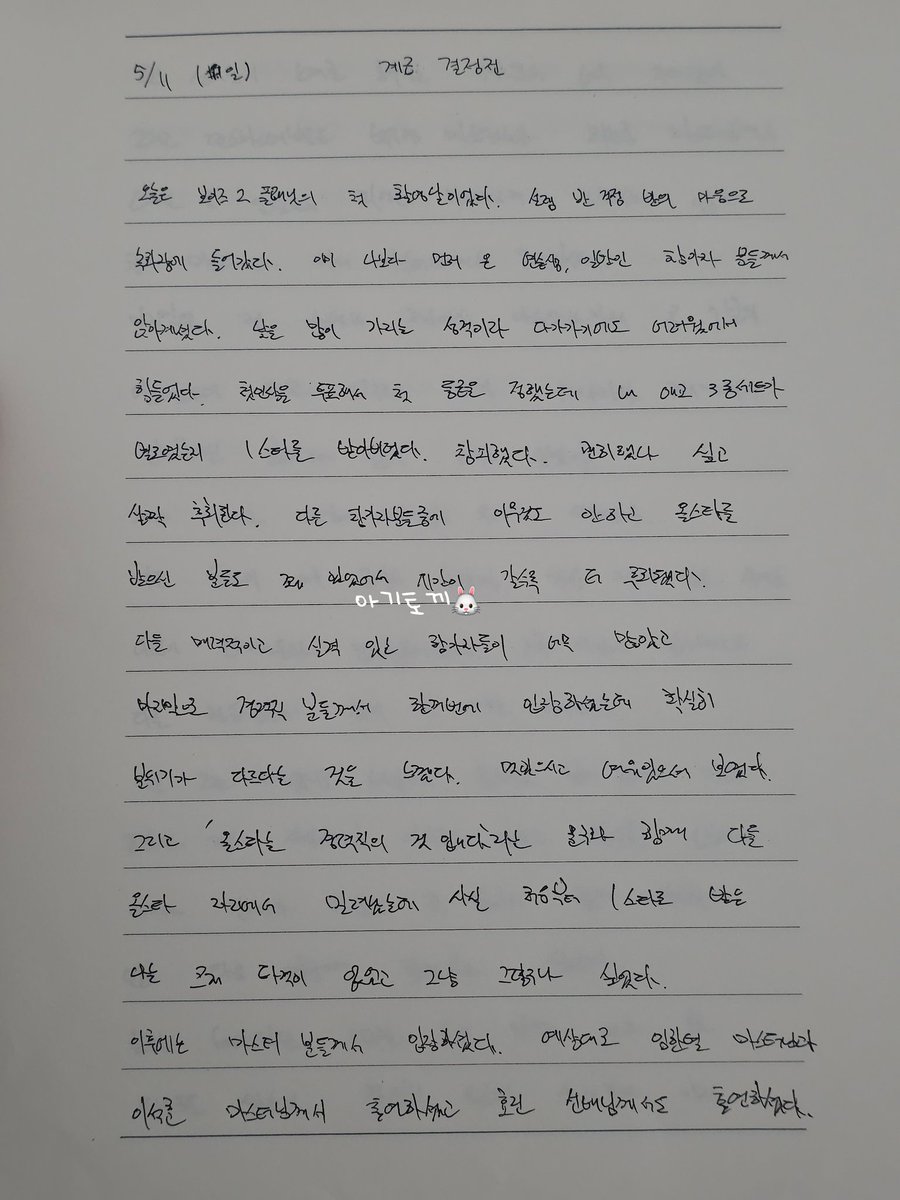 5/11 (일) 계급 결정전
오늘은 보이즈 2 플래닛의 첫 촬영날이었다. 설렘 반 걱정 반의 마음으로
녹화장에 들어갔다. 이미 나보다 먼저 온 연습생, 일반인 참가자 분들께서
앉아계셨다. 낯을 많이 가리는 성격이라 다가가기에도 어려워서
힘들었다. 첫인상을 투표해서 첫 등급을 정했는데 애교 3종세트가
별로였는지 1스타를 받아버렸다. 창피했다. 괜히했나 싶고
살짝 후회된다. 다른 참가자분들중에 아무것도 안하고 올스타를
받으신 분들도 꽤 있었어서 시간이 갈수록 더 후회됐다.
아기토끼🐰
다들 매력적이고 실력 있는 참가자들이 너무 많았고
마지막으로 경력직 분들께서 한꺼번에 입장하셨는데 확실히
분위기가 다르다는 것을 느꼈다. 멋있으시고 여유있으셔 보였다.
그리고 '올스타는 경력직의 것 입니다'라는 문구와 함께 다들
올스타 자리에서 밀려났는데 사실 처음부터 1스타로 받은
나는 크게 타격이 없었고 그냥 그렇구나 싶었다.
이후에는 마스터 분들께서 입장하셨다. 예상대로 임한별 마스터님과
이석훈 마스터님께서 출연하셨고 효린 선배님께서도 출연하셨다.